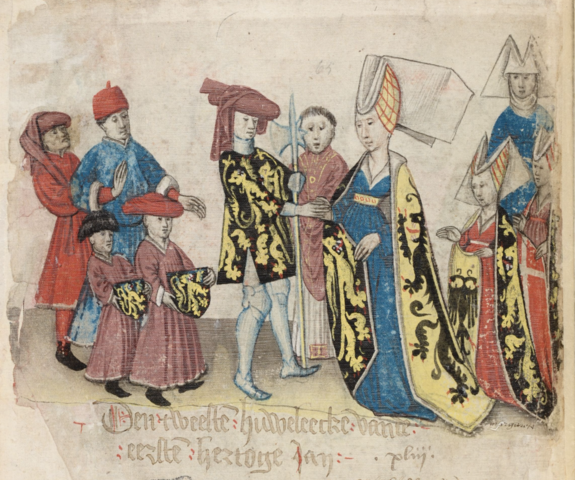 Den tweeste huweleecke vante
eersten hertoge Jan · plij ·